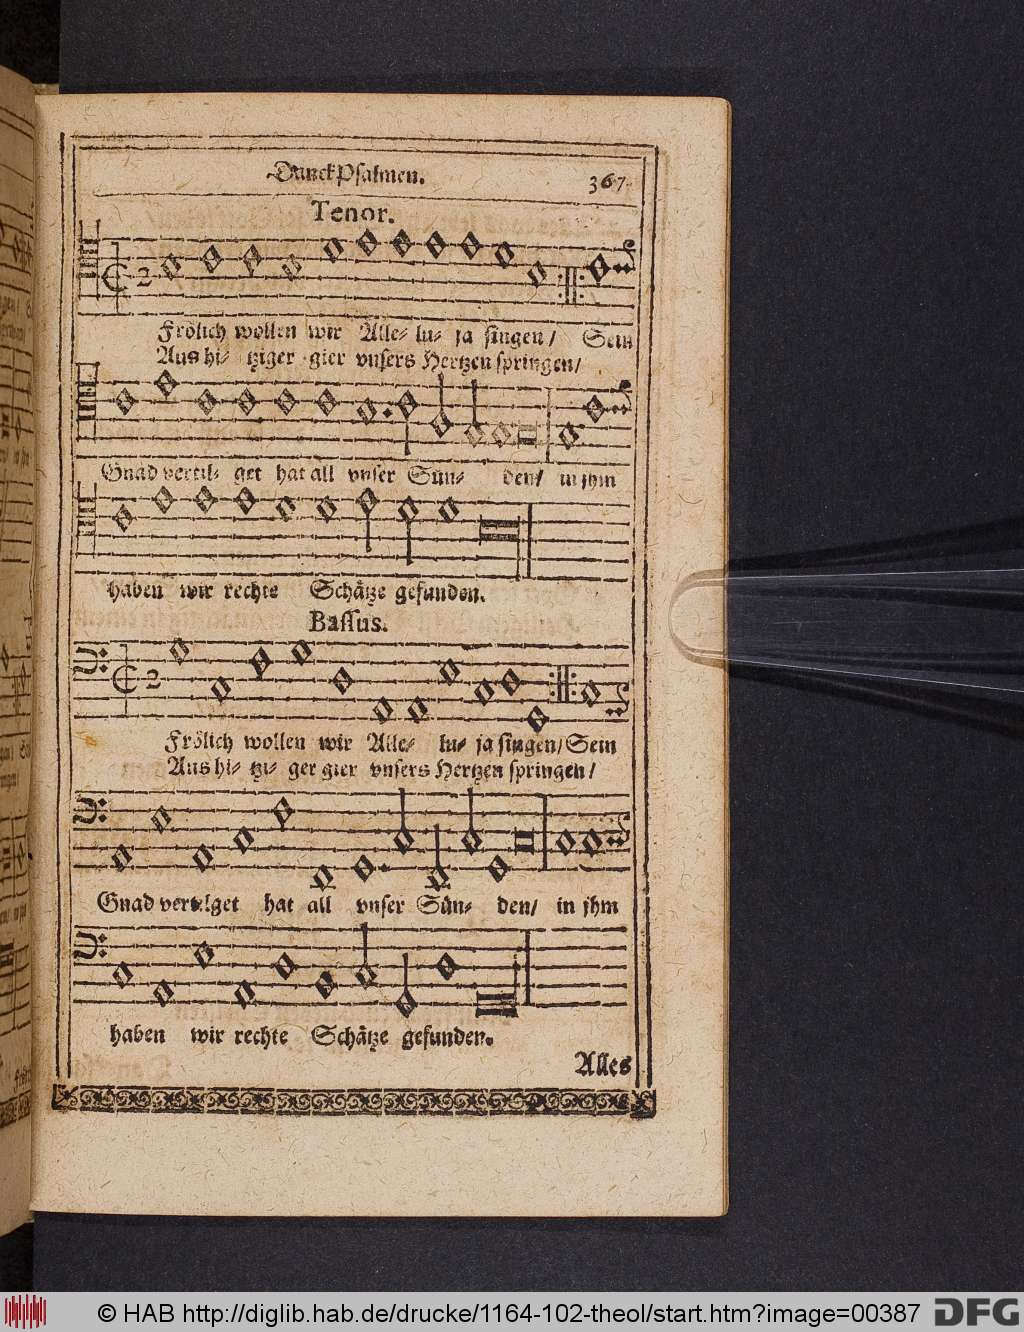 DanckPsalmen. 367.
Tenor.
Frölich wollen wir Alle- lu- ja singen/ Sein
Aus hi- tziger gier vnsers Hertzen springen/
Gnad vertil- get hat all vnser Sün- den/ in jhm
haben wir rechte Schätze gefunden.
Bassus.
Frölich wollen wir Alle- lu- ja singen/ Sein
Aus hi- tzi- ger gier vnsers Hertzen springen/
Gnad vertilget hat all vnser Sün- den/ in jhm
haben wir rechte Schätze gefunden.
Alles
© HAB http://diglib.hab.de/drucke/1164-102-theol/start.htm?image=00387 DFG